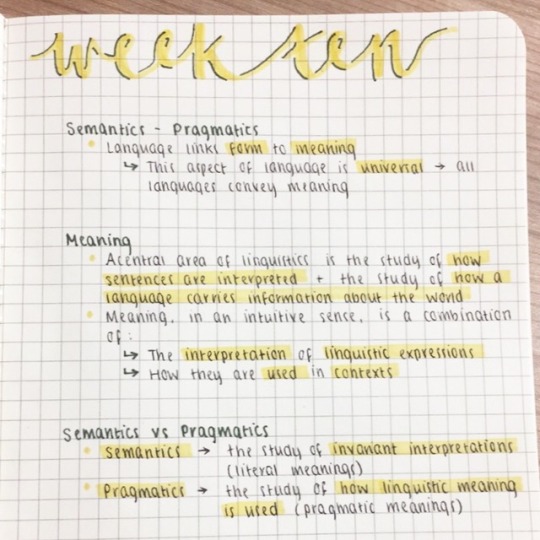 week ten
Semantics - Pragmatics
• Language links form to meaning
↳ This aspect of language is universal → all
languages convey meaning
Meaning
• A central area of linguistics is the study of how
sentences are interpreted + the study of how a
language carries information about the world
• Meaning, in an intuitive sense, is a combination
of:
↳ The interpretation of linguistic expressions
↳ How they are used in contexts
Semantics vs Pragmatics
• Semantics → the study of invariant interpretations
(literal meanings)
• Pragmatics → the study of how linguistic meaning
is used (pragmatic meanings)